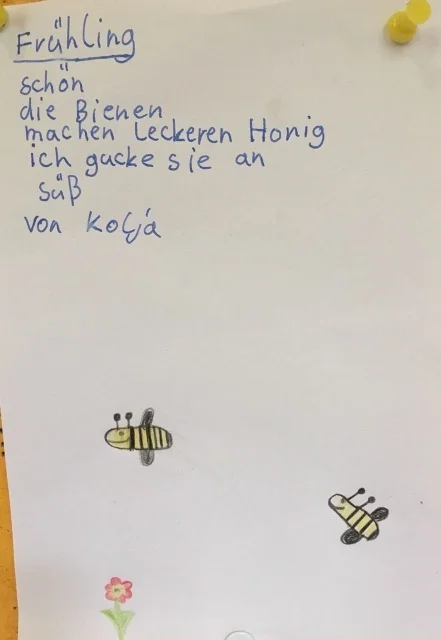 Frühling
schön
die Bienen
machen Leckeren Honig
ich gucke sie an
süß
von Kolja